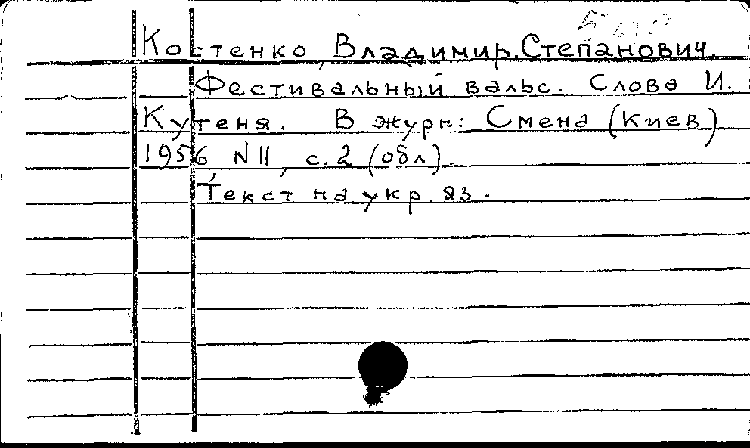 Костенко, Владимир Степанович.
Фестивальный вальс. Слова И.
Кутеня. В журн: Смена (Киев)
1956, N 11, с. 2 (обл).
Текст на укр. яз.